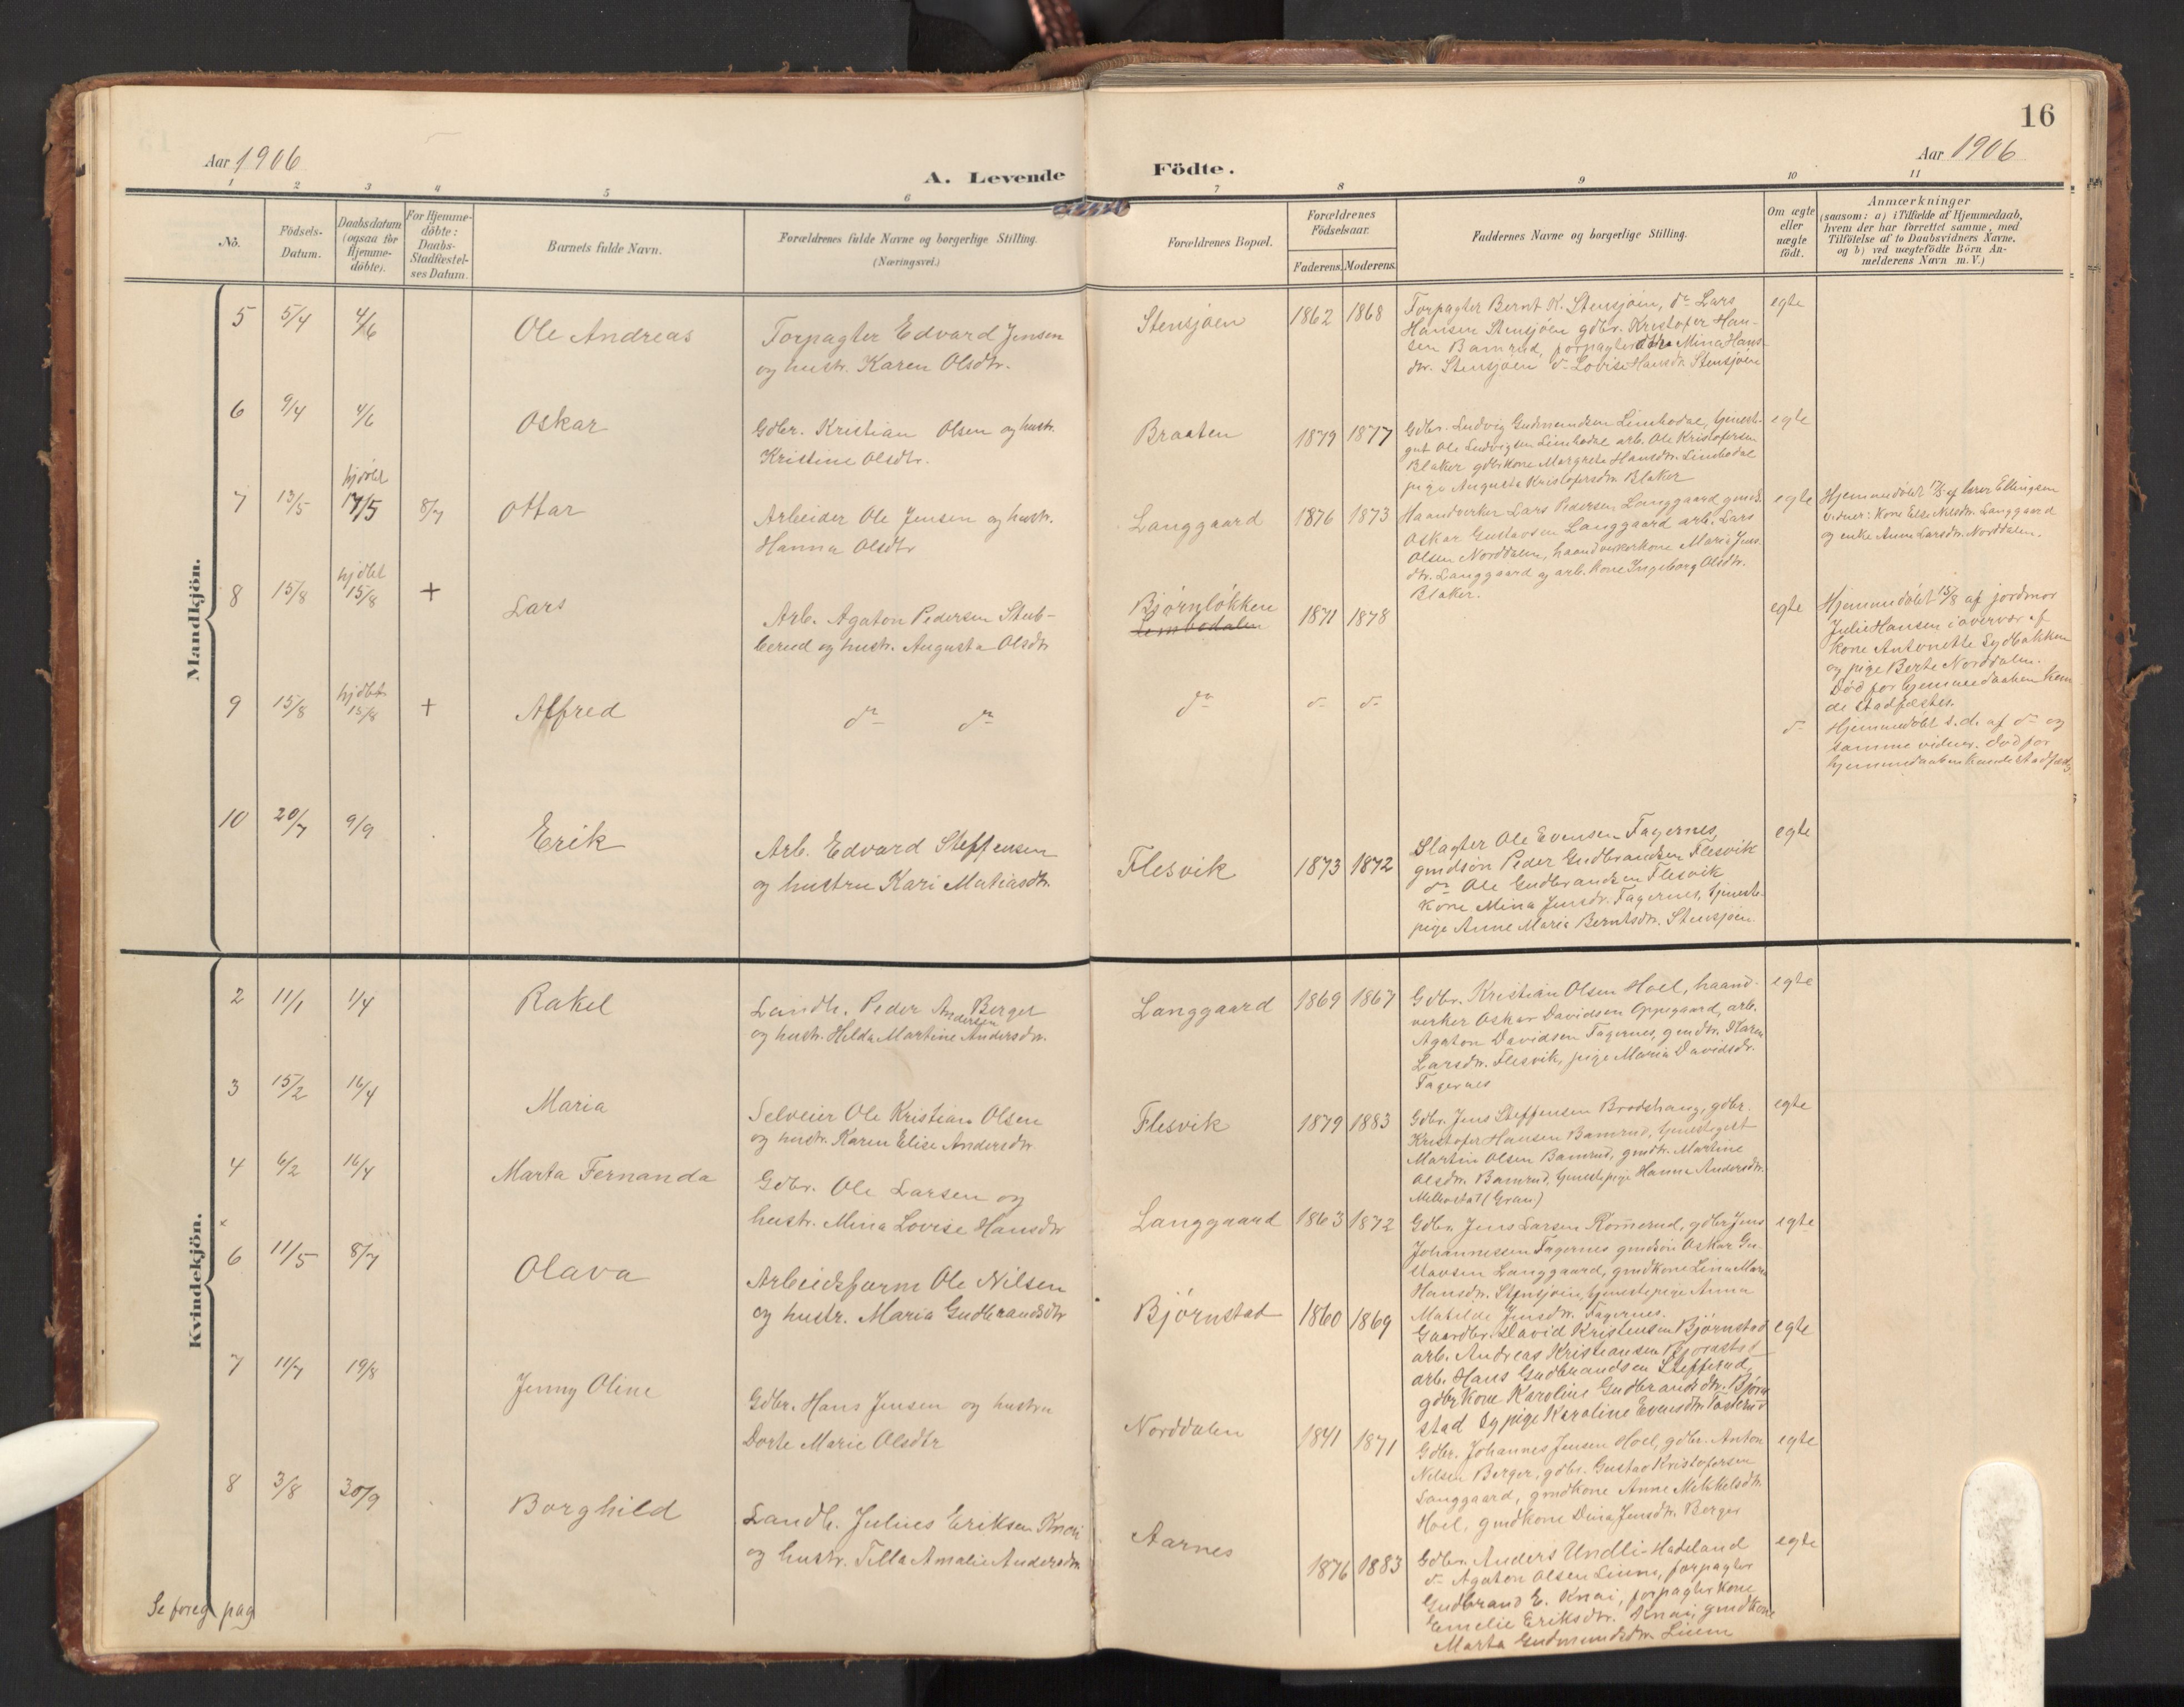 16
Aar 1906
A. Levende Födte.
Aar 1906
1 2 3 4 5 6 7 8 9 10 11
No.
Födsels-
Datum.
Daabsdatum
(ogsaa for
Hjemme-
döbte).
For Hjemme-
döbte:
Daabs-
Stadfæstel-
ses Datum.
Barnets fulde Navn.
Forældrenes fulde Navne og borgerlige Stilling.
(Næringsvei.)
Forældrenes Bopæl.
Forældrenes
Födselsaar.
Faderens. Moderens.
Faddernes Navne og borgerlige Stilling.
Om ægte
eller
uægte
födt.
Anmærkninger
(saasom: a) i Tilfælde af Hjemmedaab,
hvem der har forrettet samme, med
Tilföielse af to Daabsvidners Navne,
og b) ved uægtefödte Börn An-
melderens Navn m. V.)
Mandkjön.
5 5/4 4/6 Ole Andreas
Forpagter Edvard Jensen
og hustr. Karen Olsdtr.
Stensjøen 1862 1868
Forpagter Bernt K. Stensjøen, do Lars
Hansen Stensjøen gdbr. Kristofer Han-
sen Bamrud, forpagter Mina Hans-
dtr. Stensjøen do Lovise Hansdtr. Stensjøen
egte
6 9/4 4/6 Oskar
Gdbr. Kristian Olsen og hustr.
Kristine Olsdtr.
Braaten 1879 1877
Gdbr. Ludvig Gudmundsen Limbodal, tjeneste-
gut Ole Ludvigsen Limbodal arb. Ole Kristofersen
Blaker gdbrkone Margrete Hansdtr. Limbodal
pige Augusta Kristofersdtr. Blaker
egte
7 13/5 hjdöbt 17/5 8/7 Ottar
Arbeider Ole Jensen og hustr.
Hanna Olsdtr
Langgaard 1876 1873
Haandverker Lars Pedersen Langgaard, gmds.
Oskar Gustavsen Langgaard arb. Lars
Olsen Norddalen, haandverkerkone Maria Jens
dtr. Langgaard og arb. kone Ingeborg Olsdtr.
Blaker.
egte
Hjemmedöbt 17/5 af lærer Ellingsen
vidner: kone Else Nilsdtr. Langgaard
og enke Anne Larsdtr. Norddalen.
8 15/8 hjdbt 15/8 + Lars
Arb. Agaton Pedersen Stub-
berud og hustr. Augusta Olsdtr
Bjørnløkken
Limbodalen
1871 1878
egte
Hjemmedöbt 15/8 af jordmor
Julie Hansen i overvær af
kone Antonette Sydbakken
og pige Berte Norddalen.
Död før hjemmedaaben kun
de stadfæstes.
9 15/8 hjdbt 15/8 + Alfred
do do
do do do
do
Hjemmedöbt s. d. af do og
samme vidner. död før
hjemmedaaben kunde stadfæstes
10 20/7 9/9 Erik
Arb. Edvard Steffensen
og hustru Kari Matiasdtr.
Flesvik 1873 1872
Slagter Ole Evensen Fagernes,
gmdsön Peder Gudbrandsen Flesvik
do Ole Gudbrandsen Flesvik
kone Mina Jensdtr. Fagernes, tjeneste-
pige Anne Maria Berntsdtr. Stensjøen
egte
Kvindekjön.
2 11/1 1/4 Rakel
Landh. Peder Andersen Berger
og hustr. Hilda Martine Andersdtr.
Langgaard 1869 1867
Gdbr. Kristian Olsen Hoel, haand-
verker Oskar Davidsen Oppegaard, arb.
Agaton Davidsen Fagernes, gmdtr. Karen
Larsdtr. Flesvik, pige Maria Davidsdtr.
Fagernes
egte
3 15/2 16/4 Maria
Selveier Ole Kristian Olsen
og hustr. Karen Elise Andersdtr
Flesvik 1879 1883
Gdbr. Jens Steffensen Brodshaug, gdbr.
Kristofer Hansen Bamrud, tjenestegut
Martin Olsen Bamrud, gmdtr. Martine
Olsdtr. Bamrud, tjenestepige Hanna Andersdtr.
(Gran)
egte
4 6/2 16/4 Marta Fernanda
Gdbr. Ole Larsen og
hustr. Mina Lovise Hansdtr
Langgaard 1863 1872
Gdbr. Jens Larsen Rom̅erud, gdbr Jens
Johannessen Fagernes gmdsön Oskar Gu-
stavsen Langgaard, gmdkone Lina Marie
Hansdtr. Stensjøen, tjenestepige Anna
Matilde Jensdtr. Fagernes.
egte
6 11/5 8/7 Olava
Arbeidsform Ole Nilsen
og hustr. Maria Gudbrandsdtr
Björnstad 1860 1869
Gaardbr. David Kristensen Bjørnstad
arb. Andreas Kristiansen Bjørnstad
arb. Hans Gudbrandsen Stefferud,
gdbr kone Karoline Gudbrandsdtr. Bjørn
stad og pige Karoline Evensdtr. Tosterud
egte
7 11/7 19/8 Jenny Oline
Gdbr. Hans Jensen og hustru
Dorte Marie Olsdtr
Norddalen 1841 1871
Gdbr. Johannes Jensen Hoel, gdbr. Anton
Nilsen Berger, gdbr. Gustav Kristofersen
Langgaard, gmdkone Anne Mikkelsdtr.
Hoel, gmdkone Dina Jensdtr. Berger
egte
8 3/8 30/9 Borghild
Landh. Julius Eriksen Knai
og hustr. Tilla Amalie Andersdtr
Aarnes 1876 1883
Gdbr. Anders Undli Hadeland
do Agaton Olsen Linm, forpagter
Gudbrand E. Knai, forpagter kone
Emelie Eriksdtr. Knai, gmdkone
Marta Gudmundsdtr. Linm
egte
Se foreg pag